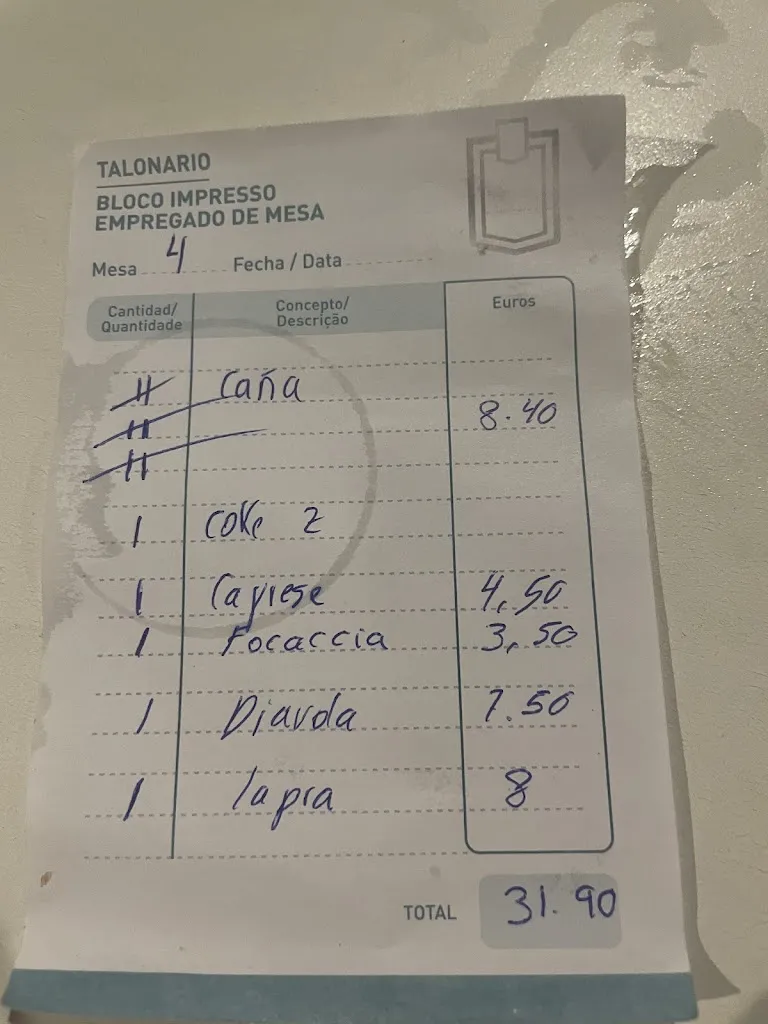 TALONARIO
BLOCO IMPRESSO
EMPREGADO DE MESA
Mesa 4 Fecha / Data
Cantidad/ Quantidade Concepto/ Descrição Euros
11 Caña
11 8.40
11
1 COKe 2
1 Caprese 4,50
1 Focaccia 3,50
1 Diavola 7.50
1 8
TOTAL 31.90